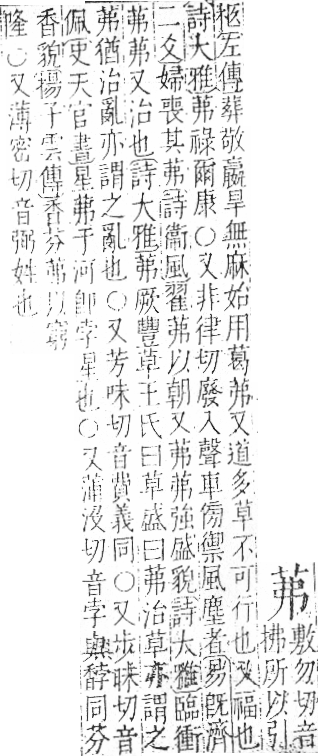 茀敷勿切音
拂所以引
柩左傳葬敬嬴旱無麻始用葛茀又道多草不可行也又福也
詩大雅茀祿爾康○又非律切廢入聲車傍禦風塵者易旣濟
二爻婦喪其茀詩衞風翟茀以朝又茀茀強盛貌詩大雅臨衝
茀茀又治也詩大雅茀厥豐草王氏曰草盛曰茀治草亦謂之
茀猶治亂亦謂之亂也○又芳味切音費義同○又步昧切音
佩史天官書星茀于河卽孛星也○又蒲沒切音孛與馞同芬
香貌揚子雲傳香芬茀以窮
隆○又薄密切音弼姓也